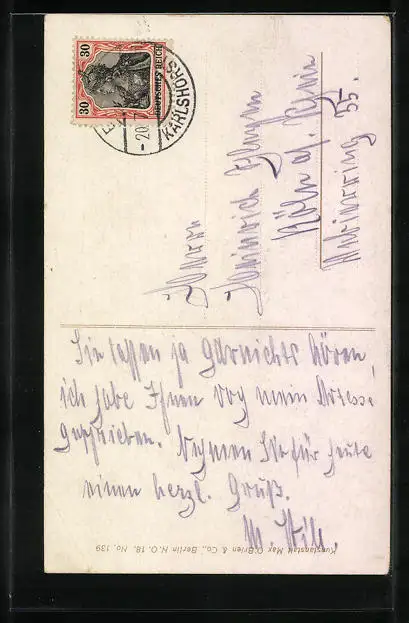 30 30
DEUTSCHES REICH
KARLSHORST
Herrn
Heinrich
Köln a/ Rhein
Ubierring 55.
Sie lassen ja garnichts hören,
ich habe Ihnen doch mein Adresse
geschrieben. Nehmen Sie für heute
einen herzl. Gruß.
Kunstanstalt Max O'Brien & Co., Berlin N. O. 18. No. 139